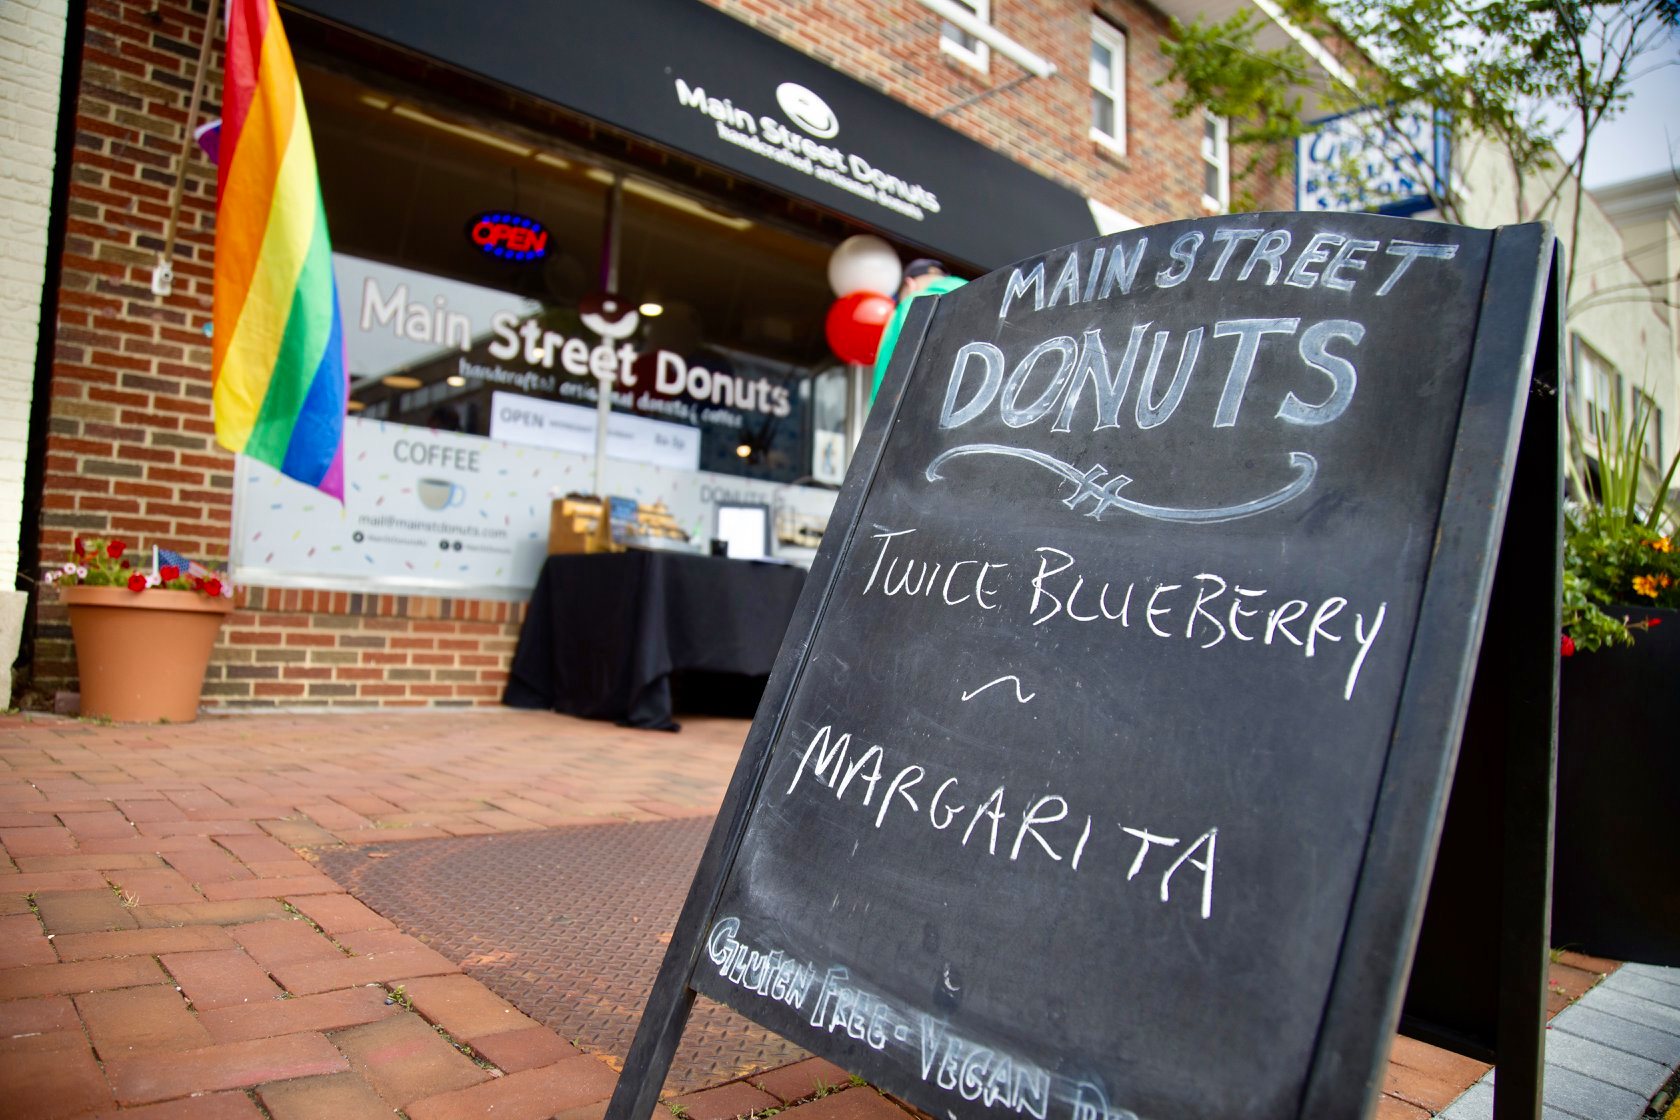 Main Street Donuts
handcrafted artisanal donuts
OPEN
Main Street Donuts
handcrafted artisanal donuts & coffee
OPEN
8a-3p
COFFEE
DONUTS
mail@mainstdonuts.com
BEAUTY
SALON
MAIN STREET
DONUTS
TWICE BLUEBERRY
~
MARGARITA
GLUTEN FREE - VEGAN